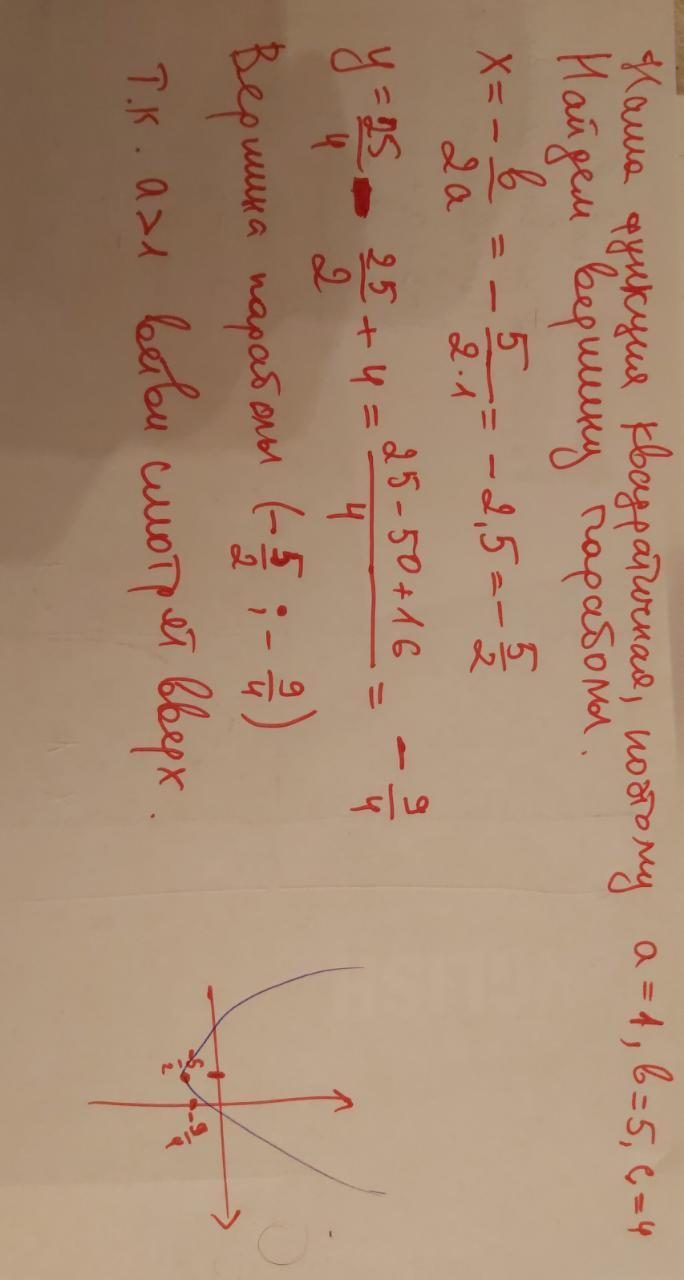 Наша функция квадратичная, поэтому a=1, b=5, c=4
Найдем вершину параболы.
x = - b/2a = - 5/2·1 = - 2,5 = - 5/2
y = 25/4 - 25/2 + 4 = 25-50+16/4 = - 9/4
Вершина параболы (- 5/2 ; - 9/4)
Т.к. a>1 ветви смотрят вверх.
-5/2
-9/4